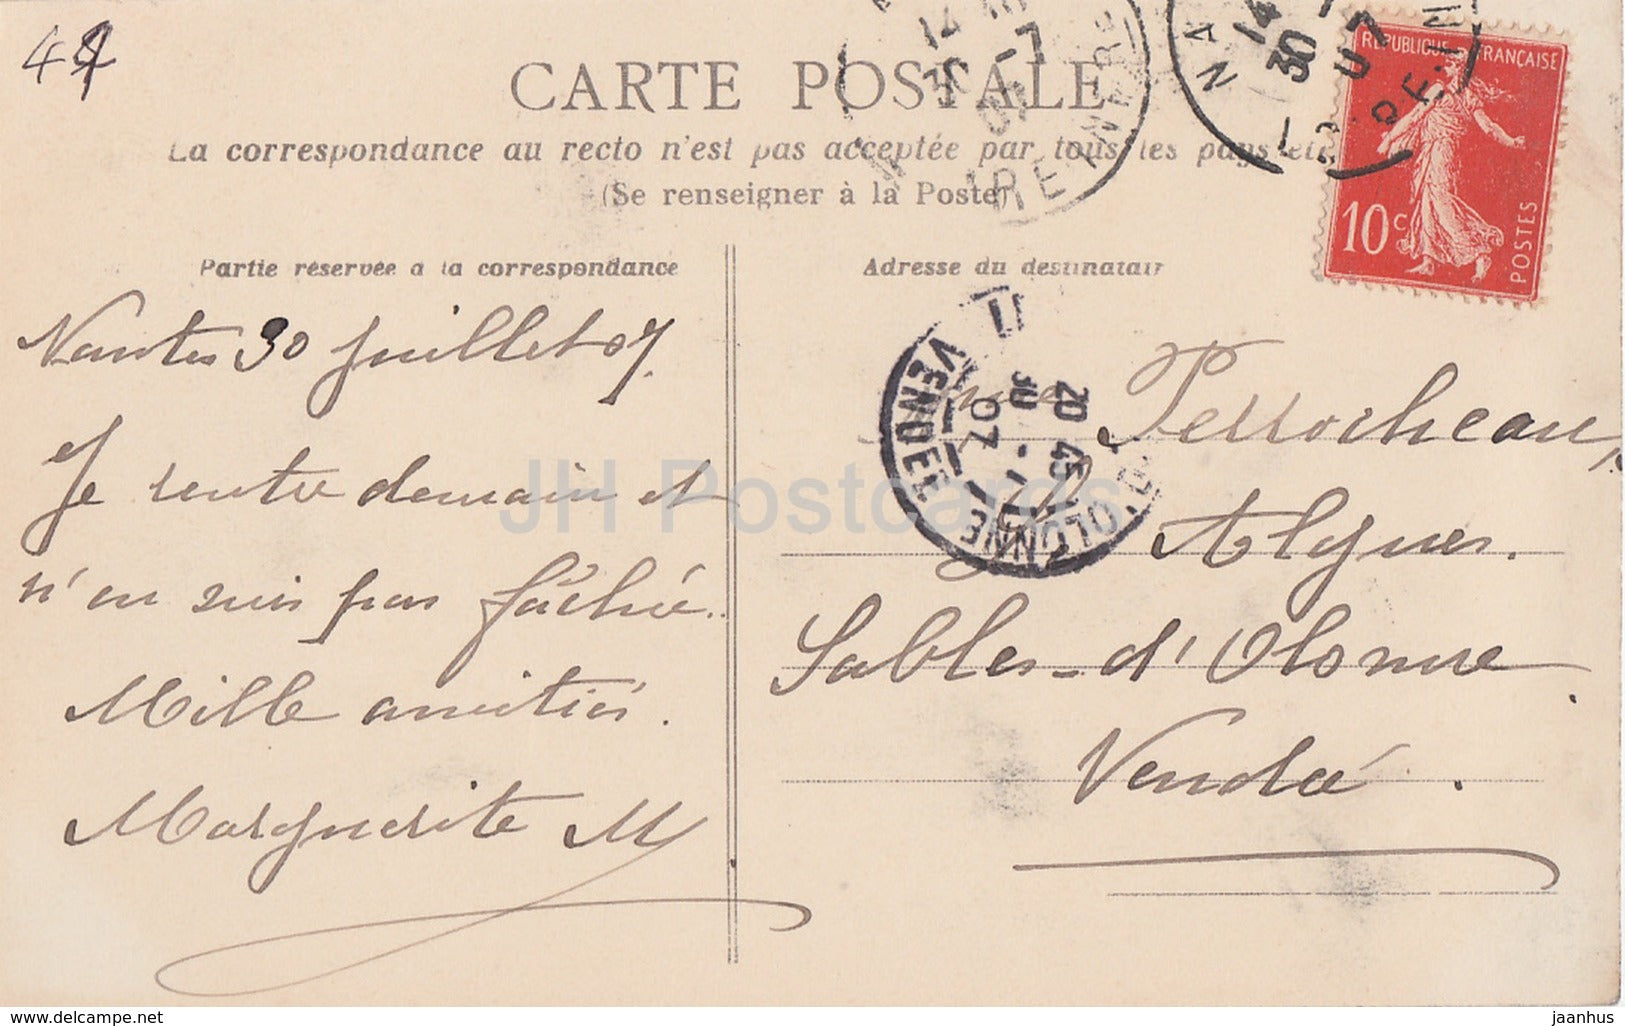 CARTE POSTALE
La correspondance au recto n'est pas acceptée par tous les pays
(Se renseigner à la Poste)
REPUBLIQUE FRANÇAISE
10 c
POSTES
Partie réservée à la correspondance
Nantes 30 juillet 07.
Je rentre demain et
n'en suis pas fâchée.
Mille amitiés.
Marguerite M
Adresse du destinatair
Perrocheau,
Algues.
Sables-d'Olonne
Vendée.
20 45
07
VENDEE
D'OLONNE
JH Postcards
www.delcampe.net
jaanhus